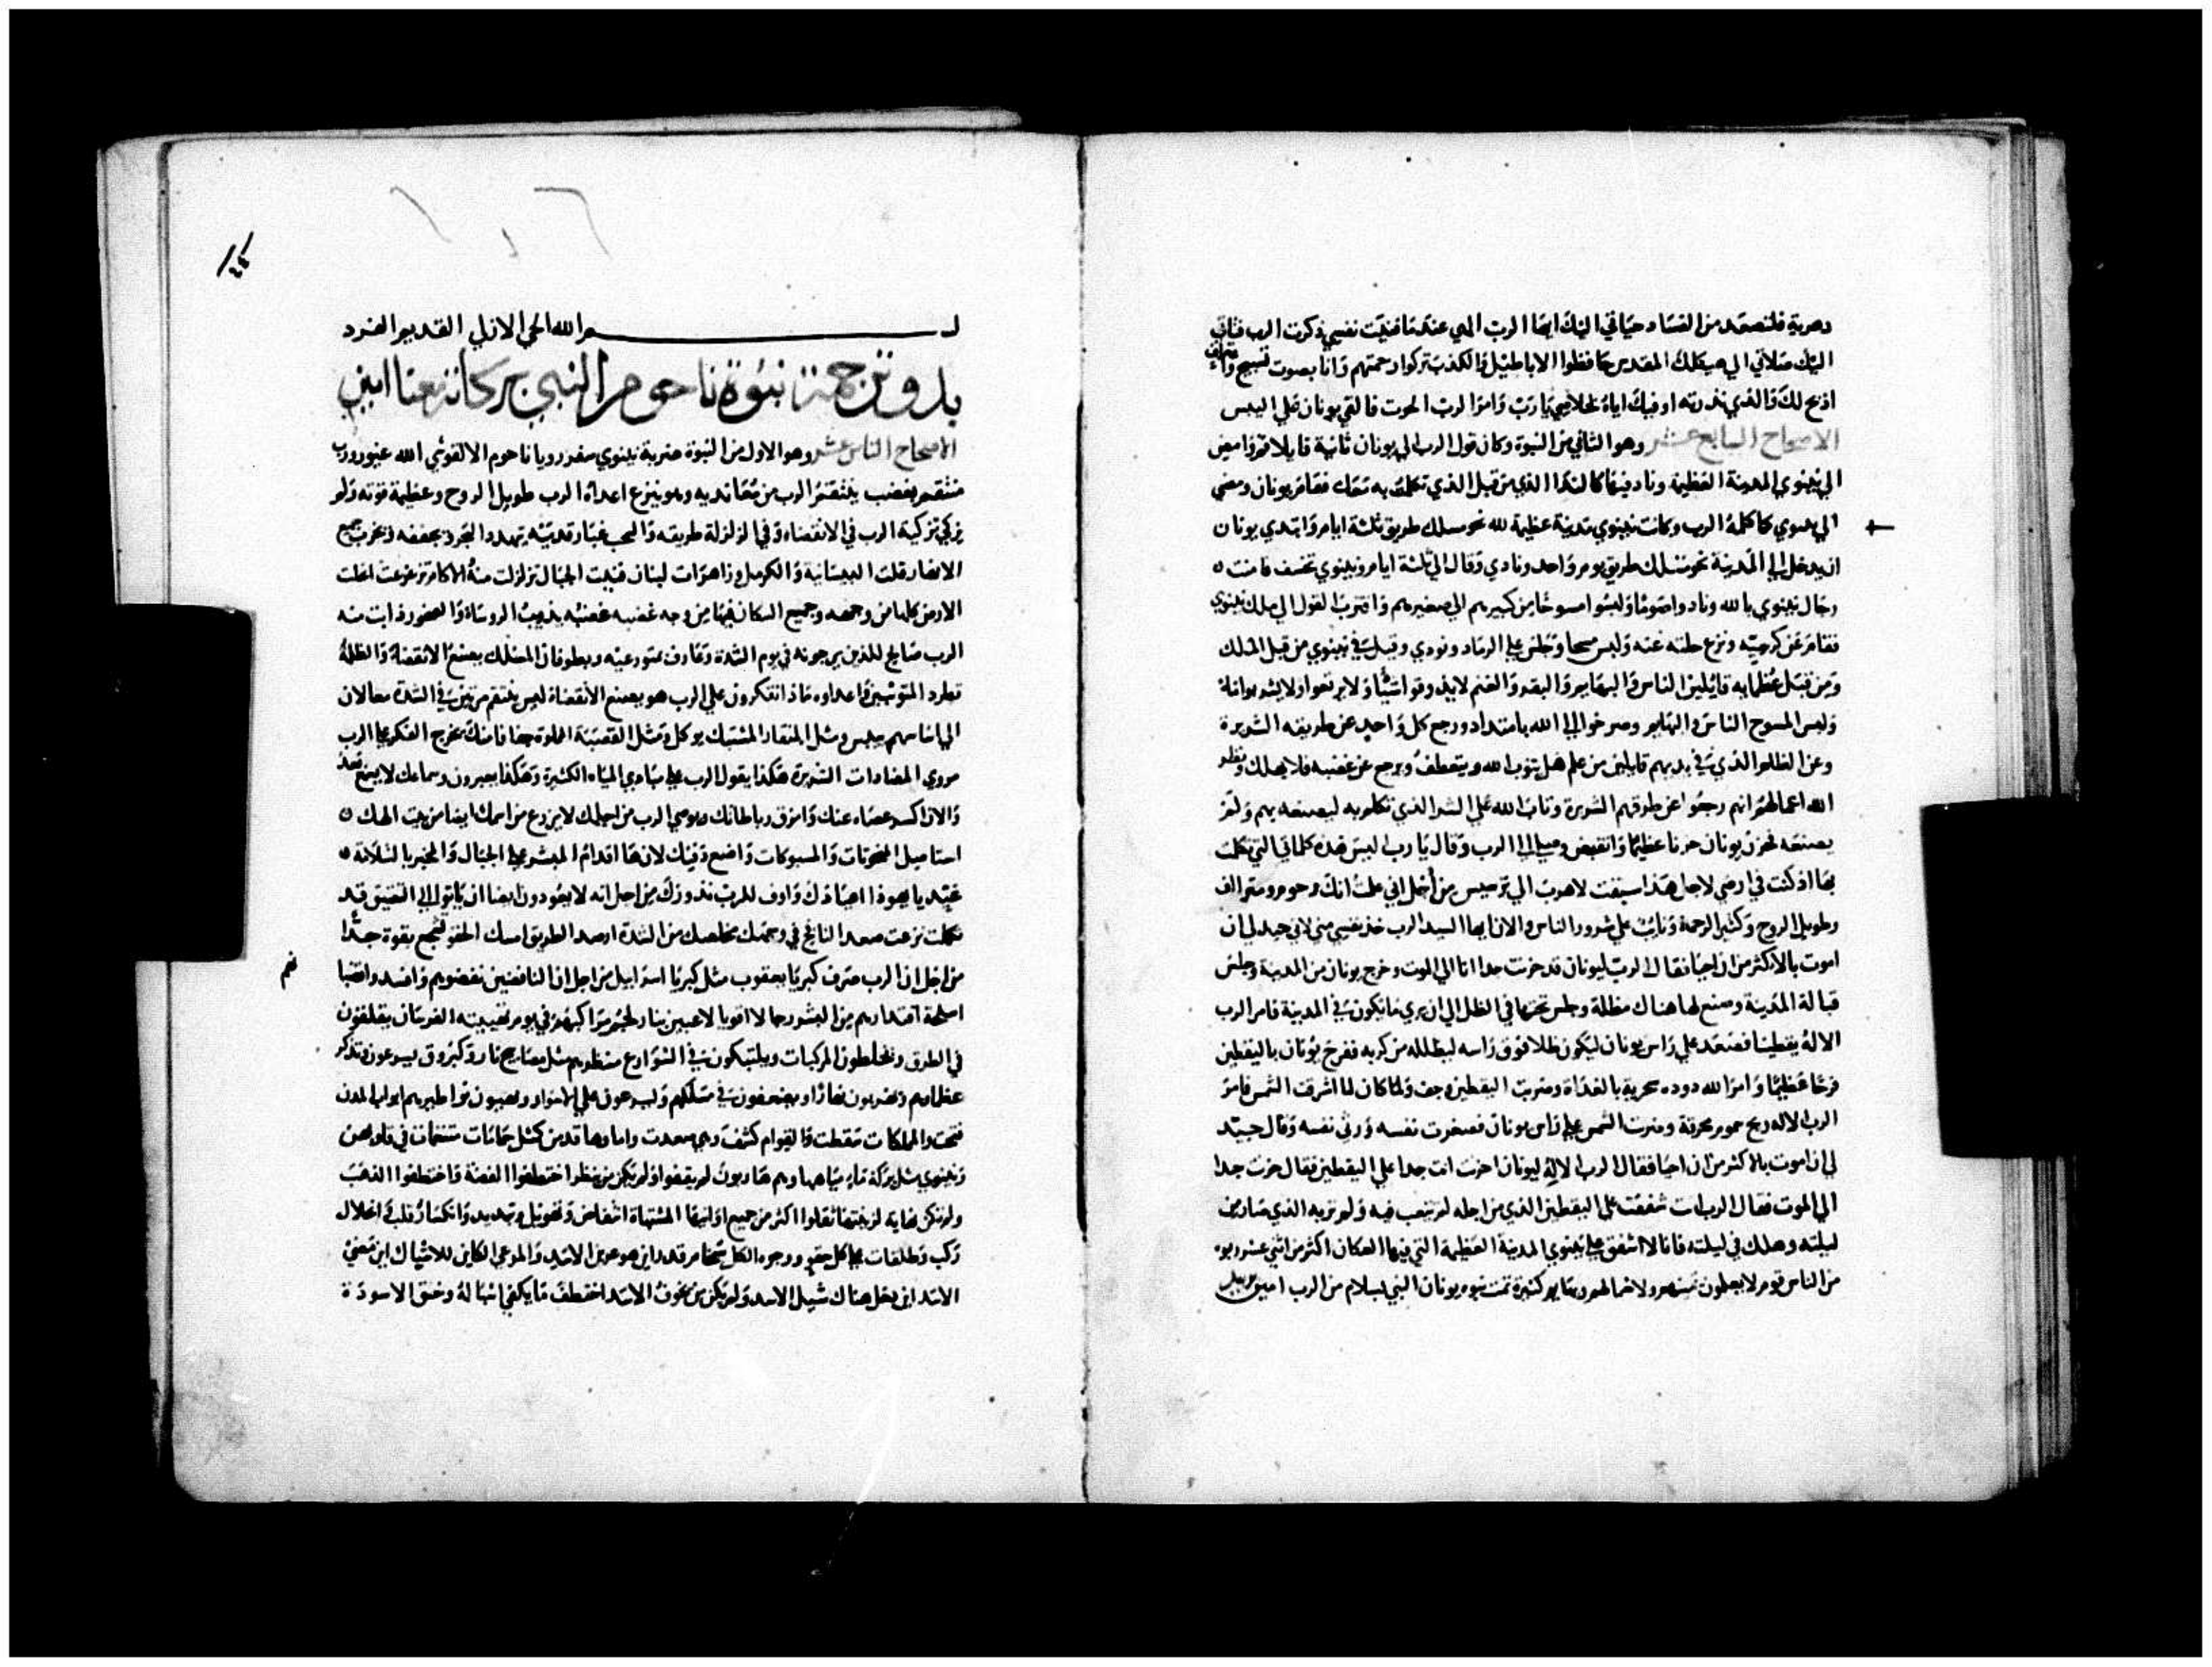 دهرية فلتصعد من الفساد حياتي اليك ايها الرب الهي عندما فنيت نفسي ذكرت الرب فتاتي
اليك صلاتي الي هيكلك المقدس حافظوا الاباطيل والكذب تركوا رحمتهم وانا بصوت تسبيح
اذبح لك والذي نذرته اوفيك اياه لخلاصي يا رب وامر الرب الحوت فالقي يونان علي اليبس
الاصحاح السابع عشر وهو الثاني من النبوة وكان قول الرب الي يونان ثانية قايلا قم وامض
الي نينوي المدينة العظيمة وناد فيها كالندا الذي من قبل الذي تكلمت به معك فقام يونان ومضي
الي نينوي كما كلمه الرب وكانت نينوي مدينة عظيمة لله نحو مسلك طريق ثلثة ايام وابتدي يونان
ان يدخل الي المدينة نحو مسلك طريق يوم واحد ونادي وقال الي ثلثة ايام ونينوي تخسف فامنت
رجال نينوي بالله ونادوا صوما ولبسوا مسوحا من كبيرهم الي صغيرهم واقترب القول الي ملك نينوي
فقام عن كرسيه ونزع حلته عنه ولبس مسحا وجلس علي الرماد ونودي وقيل في نينوي من قبل الملك
ومن قبل عظمايه قايلين الناس والبهايم والبقر والغنم لا يذوقوا شيا ولا يرتعوا ولا يشربوا ماء
ولبس المسوح الناس والبهايم وصرخوا الي الله بامتداد ورجع كل واحد عن طريقه الشريرة
وعن الظلم الذي في يديهم قايلين من علم هل يتوب الله ويتعطف ويرجع عن غضبه فلا نهلك ونظر
الله اعمالهم انهم رجعوا عن طرقهم الشريرة وتاب الله علي الشر الذي تكلم به ليصنعه بهم ولم
يصنعه فحزن يونان حزنا عظيما وانقبض وصلي الي الرب وقال يا رب اليس هذه كلماتي التي تكلمت
بها اذ كنت في ارضي لاجل هذا سبقت لاهرب الي ترسيس من أجل اني علمت انك رحوم ومتراف
وطويل الروح وكثير الرحمة وتايب علي شرور الناس والان ايها السيد الرب خذ نفسي مني لاني جيد لي ان
اموت بالاكثر من ان احيا فقال الرب ليونان قد حزنت جدا انا الي الموت وخرج يونان من المدينة وجلس
قبالة المدينة وصنع لها هناك مظلة وجلس تحتها في الظل الي ان يري ما يكون في المدينة فامر الرب
الاله يقطينا فصعد علي راس يونان ليكون ظلا فوق راسه ليظلله من كربه ففرح يونان باليقطين
فرحا عظيما وامر الله دوده سحرية بالغداة وضربت اليقطين وجف ولما كان لما اشرقت الشمس فامر
الرب الاله ريح سموم محرقة وضربت الشمس علي راس يونان فصغرت نفسه ورثي نفسه وقال جيد
لي ان اموت بالاكثر من ان احيا فقال الرب الاله ليونان احزنت انت جدا علي اليقطين فقال حزنت جدا
الي الموت فقال الرب انت شفقت علي اليقطين الذي من اجله لم تتعب فيه ولم تربه الذي صار من
ليلته وهلك في ليلته فانا لا اشفق علي نينوي المدينة العظيمة التي فيها السكان اكثر من اثني عشر ربوه
من الناس قوم لا يعلمون يمينهم ولا شمالهم وبهايم كثيرة تمت نبوه يونان النبي بسلام من الرب امين
بسم الله الحي الازلي القديم الفرد
بدو ترجمة نبوة ناحوم النبي بركاته معنا امين
الاصحاح الثامن عشر وهو الاول من النبوة ضربة نينوي سفر رويا ناحوم الالقوشي الله غيور ورب
منتقم بغضب ينتقم الرب من معانديه وهو ينزع اعداه الرب طويل الروح وعظيمة قوته ولم
يزكي تزكية الرب في الانقضاء وفي الزلزلة طريقه والسحب غبار قدميه يتهدد البحر ويجففه ويخرب جميع
الانهار قلت البيسانية والكرمل وزاهرات لبنان فنيت الجبال تزلزلت منه والاكام تزعزعت اخلت
الارض كلها من وجهه وجميع السكان فيها من وجه غضبه غضبه يذيب الروساء والصخور ذابت منه
الرب صالح للذين يرجونه في يوم الشدة وعارف متورعيه وبطوفان المسلك يصنع الانقضاء والظلمة
تطرد المتوثبين واعداوه ماذا تفتكرون علي الرب هو يصنع الانقضاء ليس ينتقم مرتين في الشدة معا لان
الي اساسهم ييبس ومثل المنقار المشتبك يوكل ومثل القصبة المملوة جفافا منك يخرج الفكر علي الرب
مروي المضادات الشريرة هكذا يقول الرب علي مبادي المياه الكثيرة وهكذا يعبرون وسماعك لا يسمع بعد
والان اكسر عصاه عنك وامزق رباطاتك ويوصي الرب من اجلك لا يزرع من اسمك ايضا من بيت الهك
استاصل المنحوتات والمسبوكات واضع قبرك لان ها اقدام المبشر علي الجبال والمخبر بالسلامة
عيد يا يهوذا اعيادك واوف للرب نذورك من اجل انه لا يعودون ايضا ان ياتوا الي التعتيق قد
كملت نزعت صعد النافخ في وجهك مخلصك من الشدة ارصد الطريق امسك الحقو تشجع بقوة جدا
من اجل ان الرب صرف كبريا يعقوب مثل كبريا اسراييل من اجل ان النافضين نفضوهم وافسدوا قضبا
اسلحة اقتدارهم من البشر رجالا اقويا لاعبين بنار لجم مراكبهم في يوم تهييته الفرسان يقلقون
في الطرق وتختلط المركبات ويشتبكون في الشوارع منظرهم مثل مصابيح نار وكبروق يسرعون وتذكر
عظماوهم ويهربون نهارا ويضعفون في مسلكهم ويسرعون علي الاسوار ويعبون مواطيهم ابواب المدن
فتحت والمملكات سقطت والقوام كشف وهي صعدت واماوها قدمن كمثل حمامات متنغمات في قلوبهن
ونينوي مثل بركة ماء مياهها وهم هاربون لم يقفوا ولم يكن من ينظر اختطفوا الفضة واختطفوا الذهب
ولم تكن نهاية لزينتها ثقلوا اكثر من جميع اوانيها المشتهاة انتفاض وتهويل وتهديد وانكسار قلب وانحلال
ركب وطلقات علي كل حقو ووجوه الكل سخام قدر اين هو عرين الاسد والمرعي الكاين للاشبال اين مضي
الاسد اين يدخل هناك شبل الاسد ولم يكن من يخوف الاسد اختطف ما يكفي اشباله وخنق الاسودة
نعم